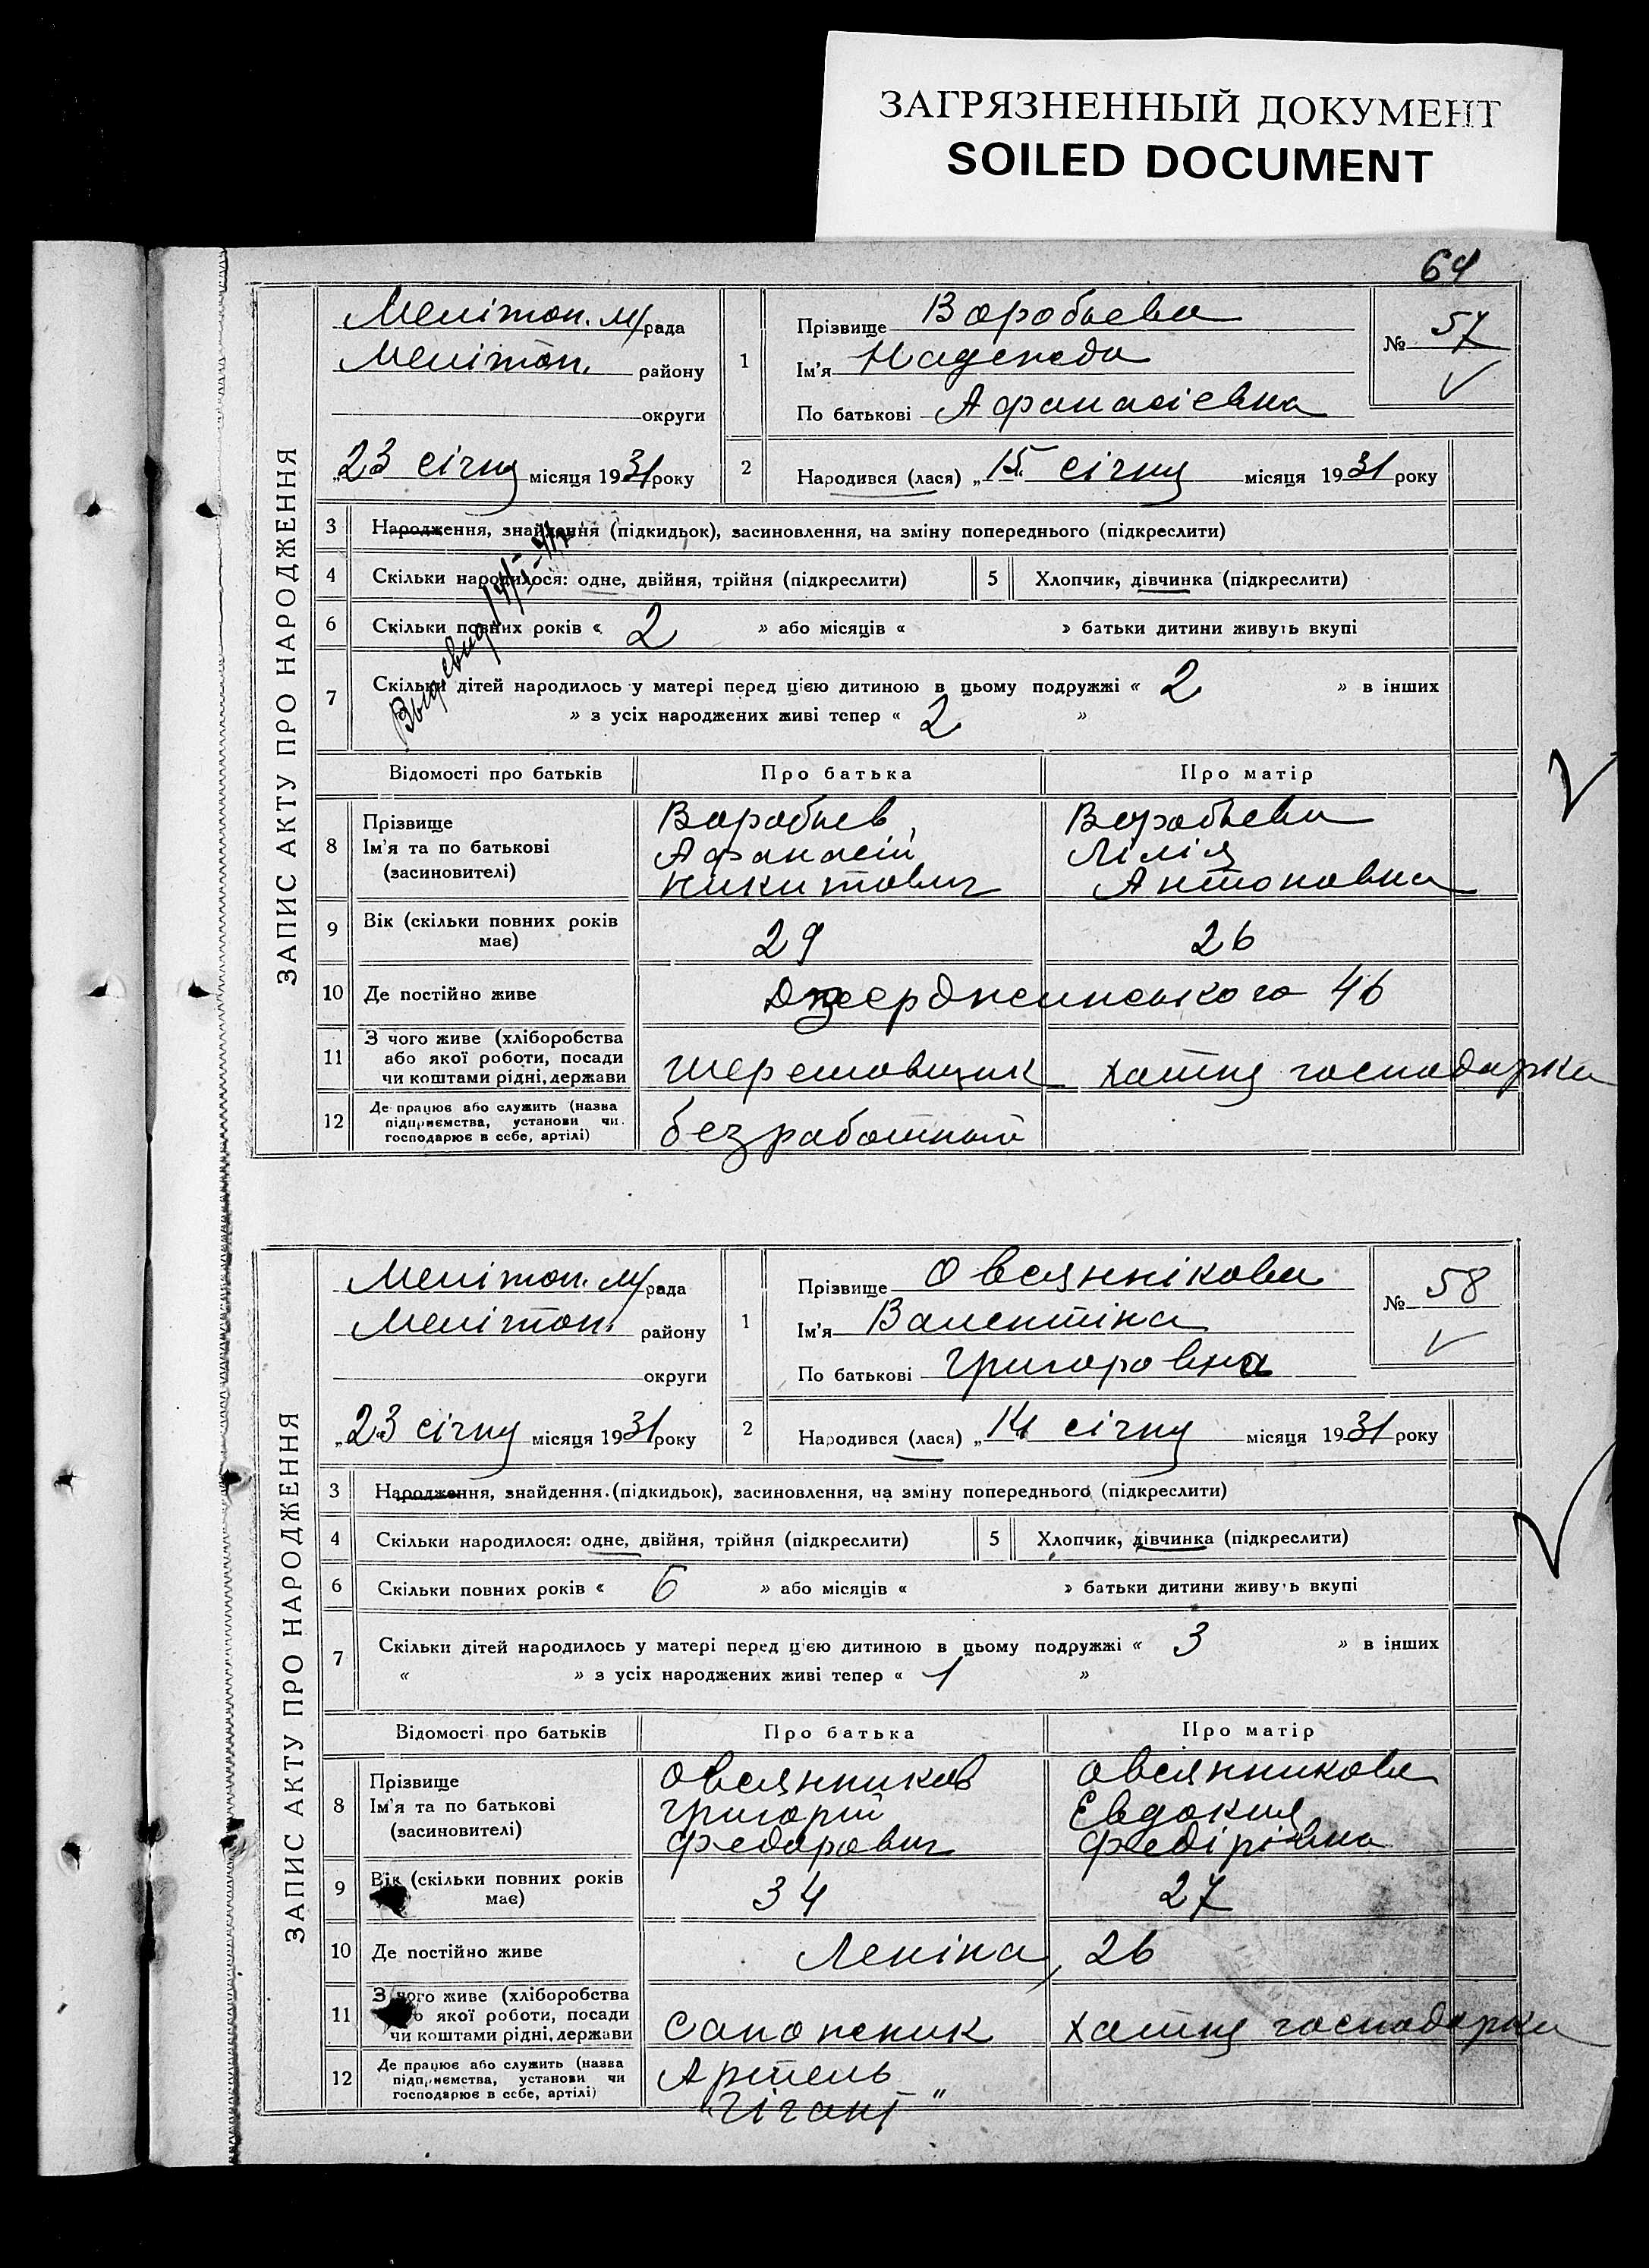 ЗАГРЯЗНЕННЫЙ ДОКУМЕНТ
SOILED DOCUMENT
64
ЗАПИС АКТУ ПРО НАРОДЖЕННЯ
Мелітоп. м/рада
Мелітоп. району
округи
„23 січня місяця 1931 року
1
Прізвище Воробьева
Ім'я Надежда
По батькові Афанасієвна
№ 57
2 Народився (лася) „15„ січня місяця 1931 року
3 Народження, знайдення (підкидьок), засиновлення, на зміну попереднього (підкреслити)
4 Скільки народилося: одне, двійня, трійня (підкреслити) 5 Хлопчик, дівчинка (підкреслити)
6 Скільки повних років « 2 » або місяців « » батьки дитини живуть вкупі
7 Скільки дітей народилось у матері перед цією дитиною в цьому подружжі « 2 » в інших
» з усіх народжених живі тепер « 2 »
Відомості про батьків Про батька Про матір
8 Прізвище Ім'я та по батькові (засиновителі)
Воробьев Афанасій Никитович
Воробьева Лілія Антоновна
9 Вік (скільки повних років має) 29 26
10 Де постійно живе Джерджинського 46
11 З чого живе (хліборобства або якої роботи, посади чи коштами рідні, держави
хатня господарка
12 Де працює або служить (назва підприємства, установи чи господарює в себе, артілі)
безработный
ЗАПИС АКТУ ПРО НАРОДЖЕННЯ
Мелітоп. м/рада
Мелітоп. району
округи
„23 січня місяця 1931 року
1
Прізвище Овсяннікова
Ім'я Валентіна
По батькові Григоровна
№ 58
2 Народився (лася) „14 січня місяця 1931 року
3 Народження, знайдення (підкидьок), засиновлення, на зміну попереднього (підкреслити)
4 Скільки народилося: одне, двійня, трійня (підкреслити) 5 Хлопчик, дівчинка (підкреслити)
6 Скільки повних років « 6 » або місяців « » батьки дитини живуть вкупі
7 Скільки дітей народилось у матері перед цією дитиною в цьому подружжі « 3 » в інших
« » з усіх народжених живі тепер « 1 »
Відомості про батьків Про батька Про матір
8 Прізвище Ім'я та по батькові (засиновителі)
Овсянников Григорій Федорович
Овсянникова Евдокия Федірівна
9 Вік (скільки повних років має) 34 27
10 Де постійно живе Леніна, 26
11 З чого живе (хліборобства або якої роботи, посади чи коштами рідні, держави
Сапожник хатня господарка
12 Де працює або служить (назва підприємства, установи чи господарює в себе, артілі)
Артель
"Гігант"